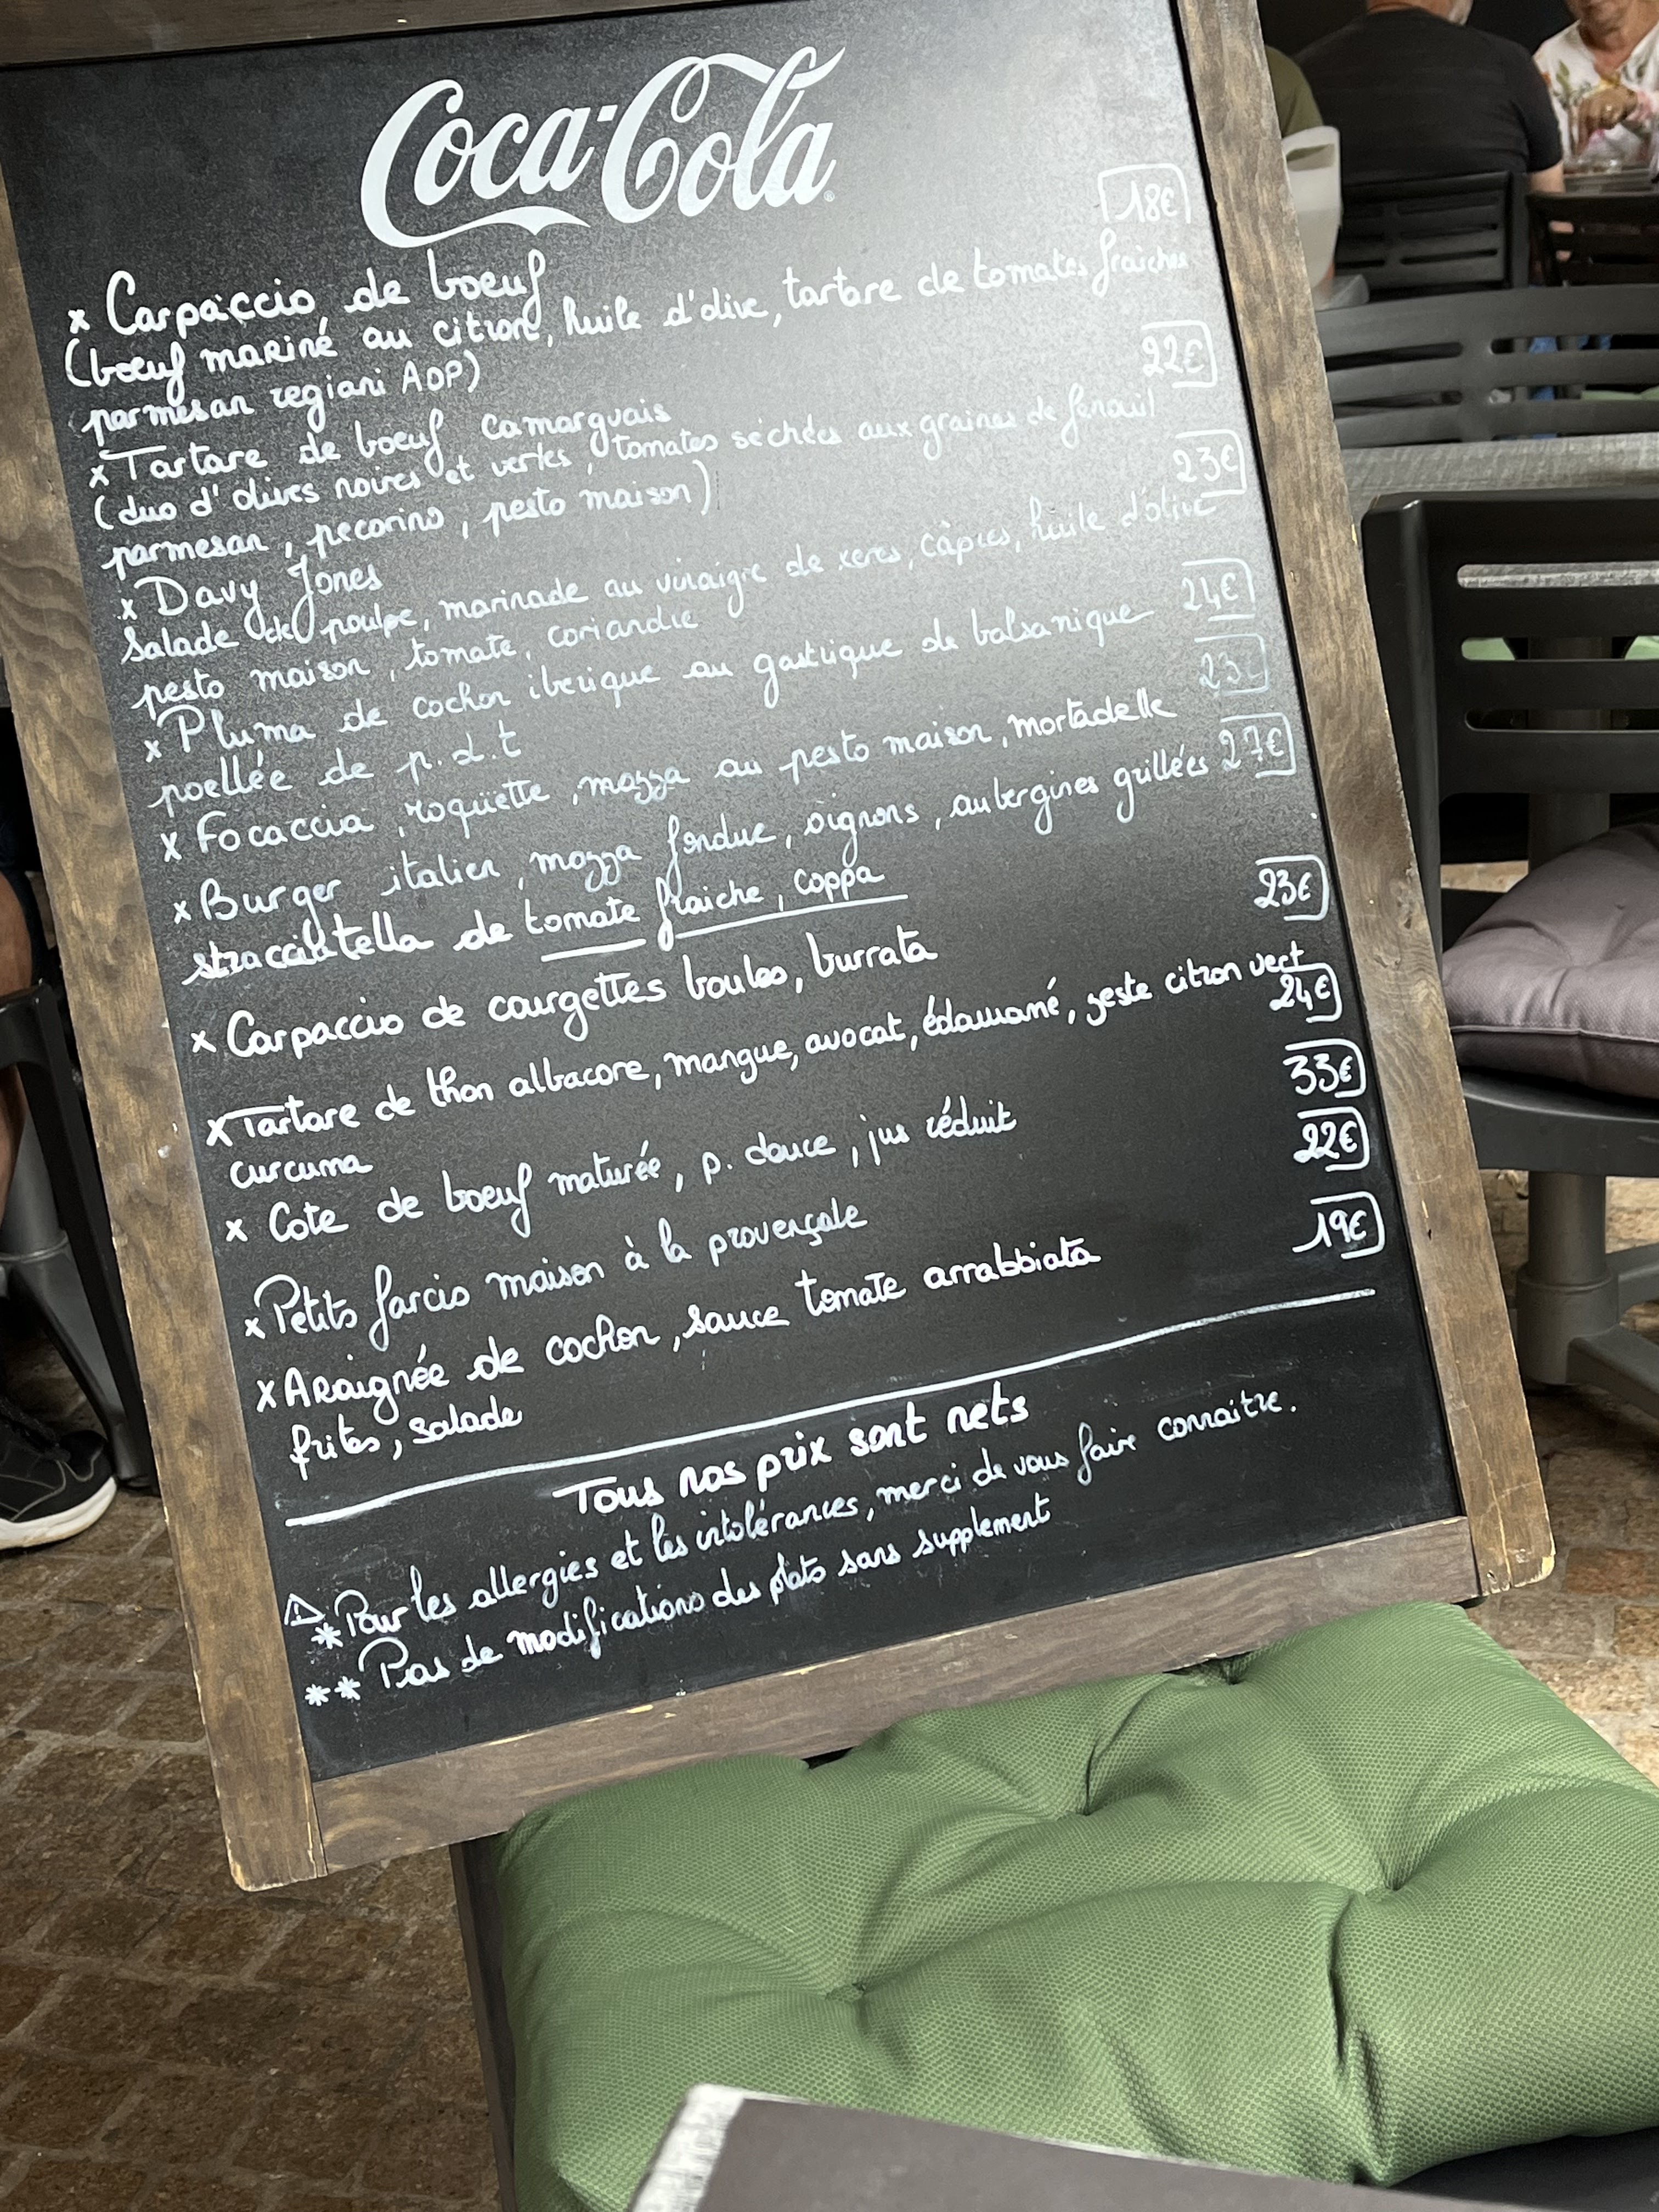 Coca-Cola
18€
x Carpaccio de boeuf
(boeuf mariné au citron, huile d'olive, tartare de tomates fraiches
parmesan regiani AOP)
22€
x Tartare de boeuf camarguais
(duo d'olives noires et vertes, tomates séchées aux graines de fenouil
parmesan, pecorino, pesto maison)
23€
x Davy Jones
Salade de poulpe, marinade au vinaigre de xeres, câpres, huile d'olive
pesto maison, tomate, coriandre
x Pluma de cochon iberique au gastrique de balsamique 24€
poellée de p.d.t
x Focaccia, roquette, mozza au pesto maison, mortadelle 23€
x Burger italien, mozza fondue, oignons, aubergines grillées 27€
stracciatella de tomate fraiche, coppa
x Carpaccio de courgettes boules, burrata 23€
x Tartare de thon albacore, mangue, avocat, édamamé, zeste citron vert
curcuma 24€
x Cote de boeuf maturée, p. douce, jus réduit 33€
x Petits farcis maison à la provençale 22€
x Araignée de cochon, sauce tomate arrabbiata 19€
frites, salade
Tous nos prix sont nets
⚠ * Pour les allergies et les intolérances, merci de vous faire connaitre.
** Pas de modifications des plats sans supplement